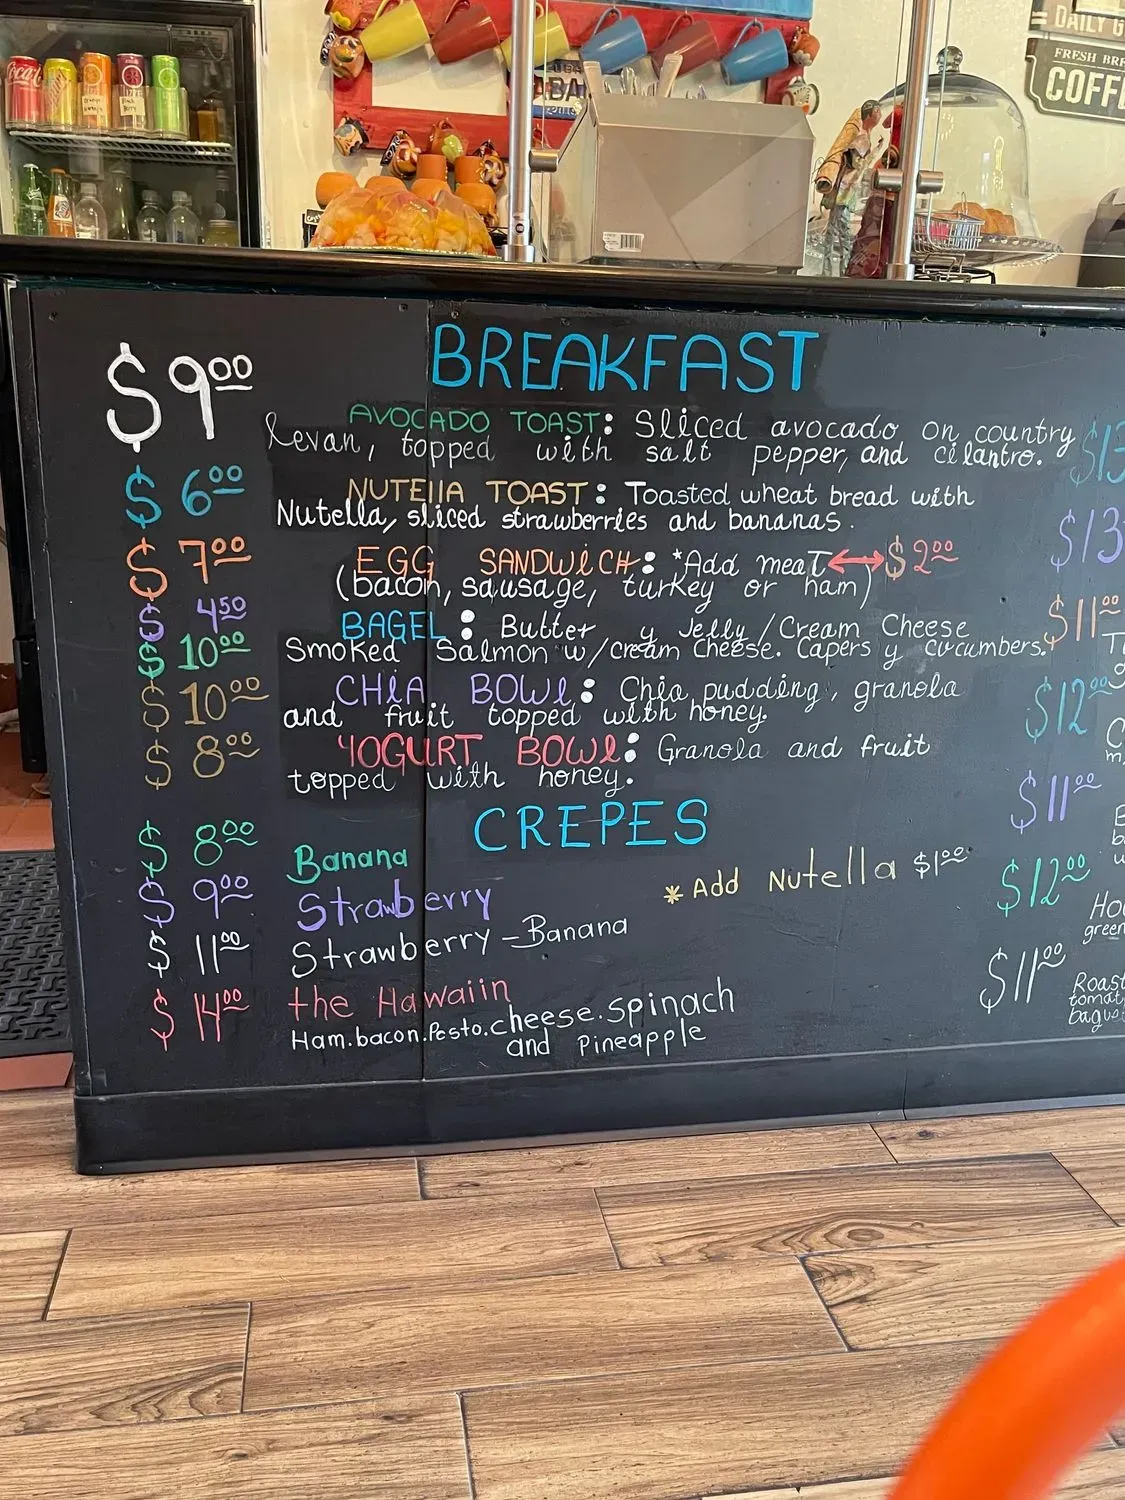 DAILY
FRESH
COFF
Coca
$9.00 BREAKFAST
AVOCADO TOAST: Sliced avocado on country $13
levan, topped with salt pepper, and cilantro.
$6.00 NUTEllA TOAST: Toasted wheat bread with
Nutella, sliced strawberries and bananas.
$13
$7.00 EGG SANDWiCH: *Add meat ↔ $2.00
(bacon, sausage, turkey or ham)
$4.50 BAGEL: Butter y Jelly/Cream Cheese $11.00
$10.00 Smoked Salmon w/cream cheese. Capers y cucumbers.
$10.00 CHiA BOWl: Chia pudding, granola $12.00
and fruit topped with honey.
$8.00 YOGURT BOWl: Granola and fruit
topped with honey.
$11.00
CREPES
$8.00 Banana
*Add Nutella $1.00
$12.00
$9.00 Strawberry
$11.00 Strawberry-Banana
green
$11.00
$14.00 the Hawaiin
Ham.bacon.Pesto.cheese.spinach
and Pineapple
Roast